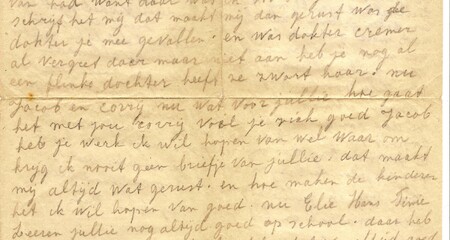 van had want daar was
schrijf het mij dat macht mij dan gerust was de
dokter je mee gevallen. en was dokter cremer
al vergiet daer maar niet aan heb je nog al
een flinke dochter heeft ze zwart haar. nu
Jacob en corrij nu wat voor jullie hoe gaat
het met jou corrij voel je zich goed Jacob
heb je werk ik wil hopen van wel waar om
krijg ik nooit geen briefje van jullie. dat macht
mij altijd wat gerust. en hoe maken de kinderen
het ik wil hopen van goed. nu Elie Hans Tinie
Leeren jullie nog altijd goed op school. daar heb